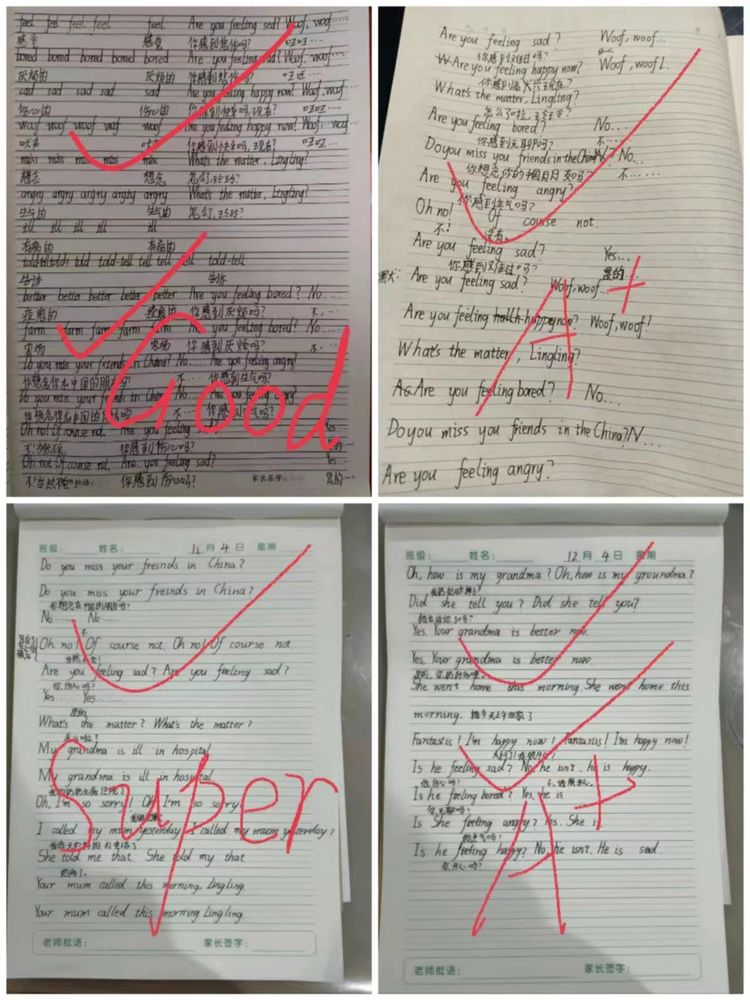 feel feel feel feel feel Are you feeling sad? Woof, woof…
感觉 感觉 你感到悲伤吗? 旺旺…
bored bored bored bored bored Are you feeling sad? Woof, woof…
厌烦的 厌烦的 你感到悲伤吗?
sad sad sad sad sad Are you feeling happy now? Woof, woof…
伤心的 伤心的 你感到快乐吗,现在?
woof woof woof woof woof Are you feeling happy now? Woof, woof…
吠声 吠声 你感到快乐吗,现在?
miss miss miss miss miss What's the matter, Lingling?
想念 想念 怎么了,玲玲?
angry angry angry angry angry What's the matter, Lingling?
生气的 生气的 怎么了,玲玲?
ill ill ill ill ill
有病的 有病的
told-tell told-tell tell tell tell told-tell
告诉 告诉
better better better better better Are you feeling bored? No…
痊愈的 痊愈的 你感到厌烦吗? 不…
farm farm farm farm farm Are you feeling bored? No…
农场 农场 你感到厌烦吗? 不…
Do you miss your friends in China? No… Are you feeling angry?
你想念你在中国的朋友吗? 不… 你感到生气吗?
Do you miss your friends in China? No… Are you feeling angry?
不… 你感到生气吗?
Oh no! Of course not. Are you feeling sad? Yes…
不!当然不 你感到伤心吗?
Oh no! Of course not. Are you feeling sad? Yes…
不!当然不 家长签字:
你感到伤心吗? 是的…
Good
Are you feeling sad? Woof, woof…
你感到难过吗?
Are you feeling happy now? Woof, woof!
What's the matter, Lingling?
怎么了,玲玲?
Are you feeling bored? No…
Do you miss you friends in the China? No…
不…
Are you feeling angry?
你感到生气吗?
Oh no! Of course not.
不! 没有。
Are you feeling sad? Yes…
你感到难过吗? 是的…
Are you feeling sad? Woof, woof…
Are you feeling happy now? Woof, woof!
What's the matter, Lingling?
Are you feeling bored? No…
Do you miss you friends in the China? N…
Are you feeling angry?
A+
班级: 姓名: 12月4日 星期
Do you miss your freinds in China?
Do you miss your freinds in China?
你想念在中国的朋友吗?
No… No…
Oh no! Of course not. Oh no! Of course not.
Are you feeling sad? Are you feeling sad?
你伤心吗?
Yes… Yes…
是的
What's the matter? What's the matter?
怎么啦?
My grandma is ill in hospital.
My grandma is ill in hospital.
Oh, I'm so sorry! Oh, I'm so sorry
I called my mum yesterday I called my mum yesterday?
She told me that. She told my that.
Your mum called this morning Lingling.
Your mum called this morning Lingling.
老师批语: 家长签字:
Super
班级: 姓名: 12月4日 星期
Oh, how is my grandma? Oh, how is my groundma?
Did she tell you? Did she tell you?
Yes. Your grandma is better now.
Yes. Your grandma is better now.
She went home this morning She went home this
morning. 她今天上午回家了
Fantastis! I'm happy now! Fantastis! I'm happy now!
Is he feeling sad? No, he isn't. he is happy.
你伤心吗?
Is he feeling bored? Yes, he is
Is She feeling angry? Yes. She is
她生气吗?
Is he feeling happy? No, he isn't. He is sad.
你开心吗?
老师批语: 家长签字:
A+